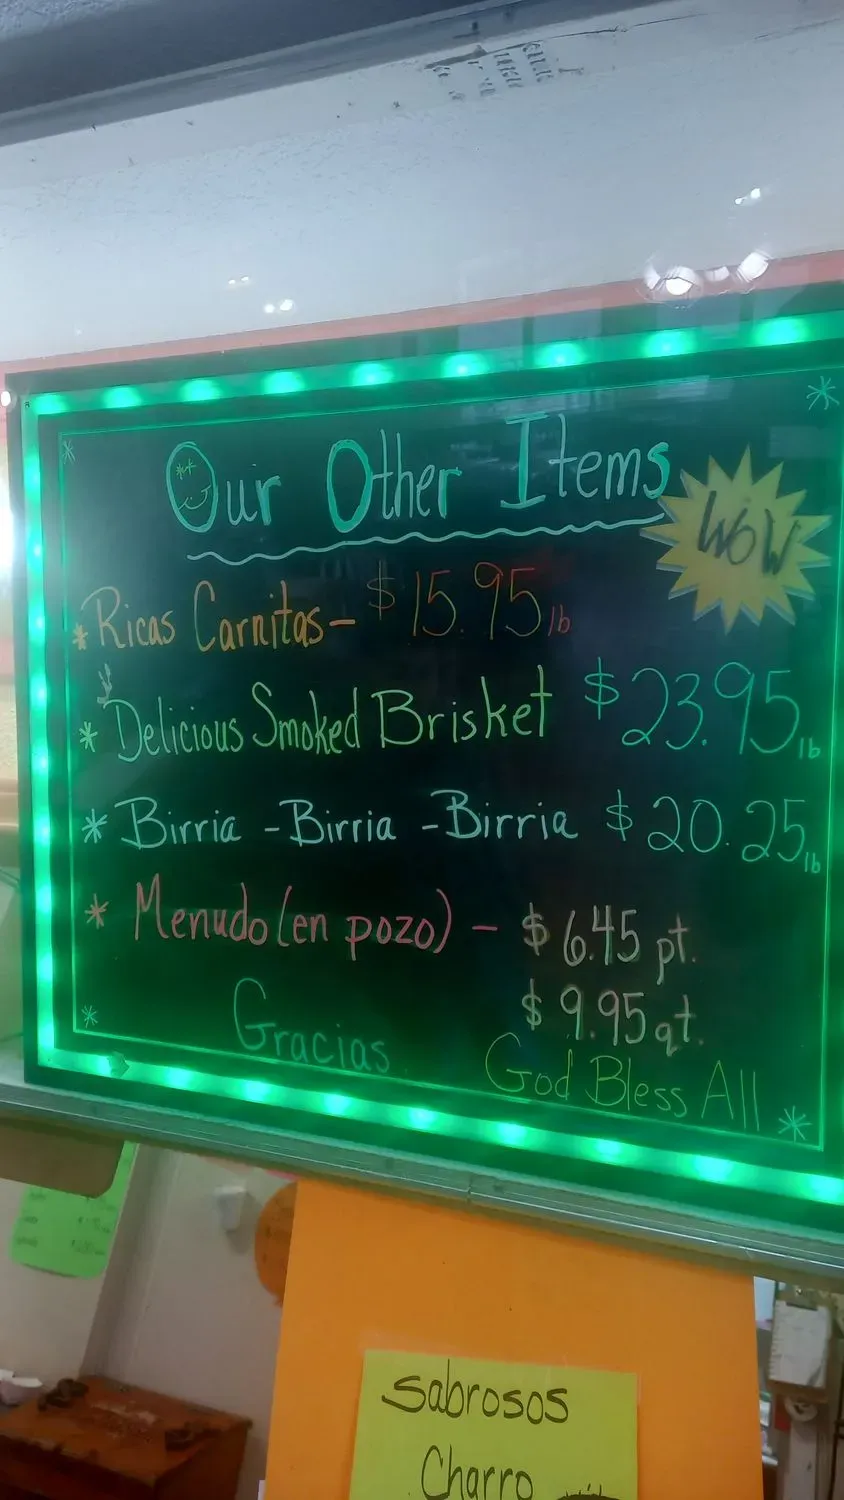 Our Other Items
WOW
* Ricas Carnitas - $15.95 lb
* Delicious Smoked Brisket $23.95 lb
* Birria - Birria - Birria $20.25 lb
* Menudo (en pozo) - $6.45 pt.
$9.95 qt.
Gracias
God Bless All
Sabrosos
Charro